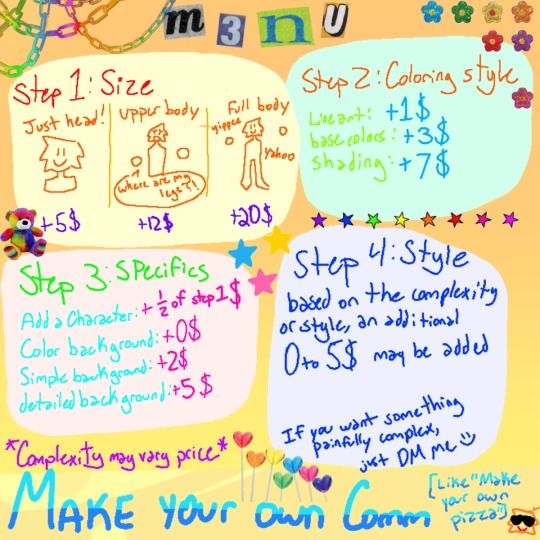 m3nu
Step 1: Size
Just head!
upper body
Full body
yippee
Yahoo
where are my
legs?!
+5$
+12$
+20$
Step 2: Coloring style
Lineart: +1$
base colors: +3$
shading: +7$
Step 3: Specifics
Add a Character: + 1/2 of step 1$
Color background: +0$
Simple background: +2$
detailed background: +5$
Step 4: Style
based on the complexity
or style, an additional
0 to 5$ may be added
If you want something
painfully complex,
just DM me
*Complexity may vary price*
MAKE your own Comm
[Like "Make
your own
pizza"]